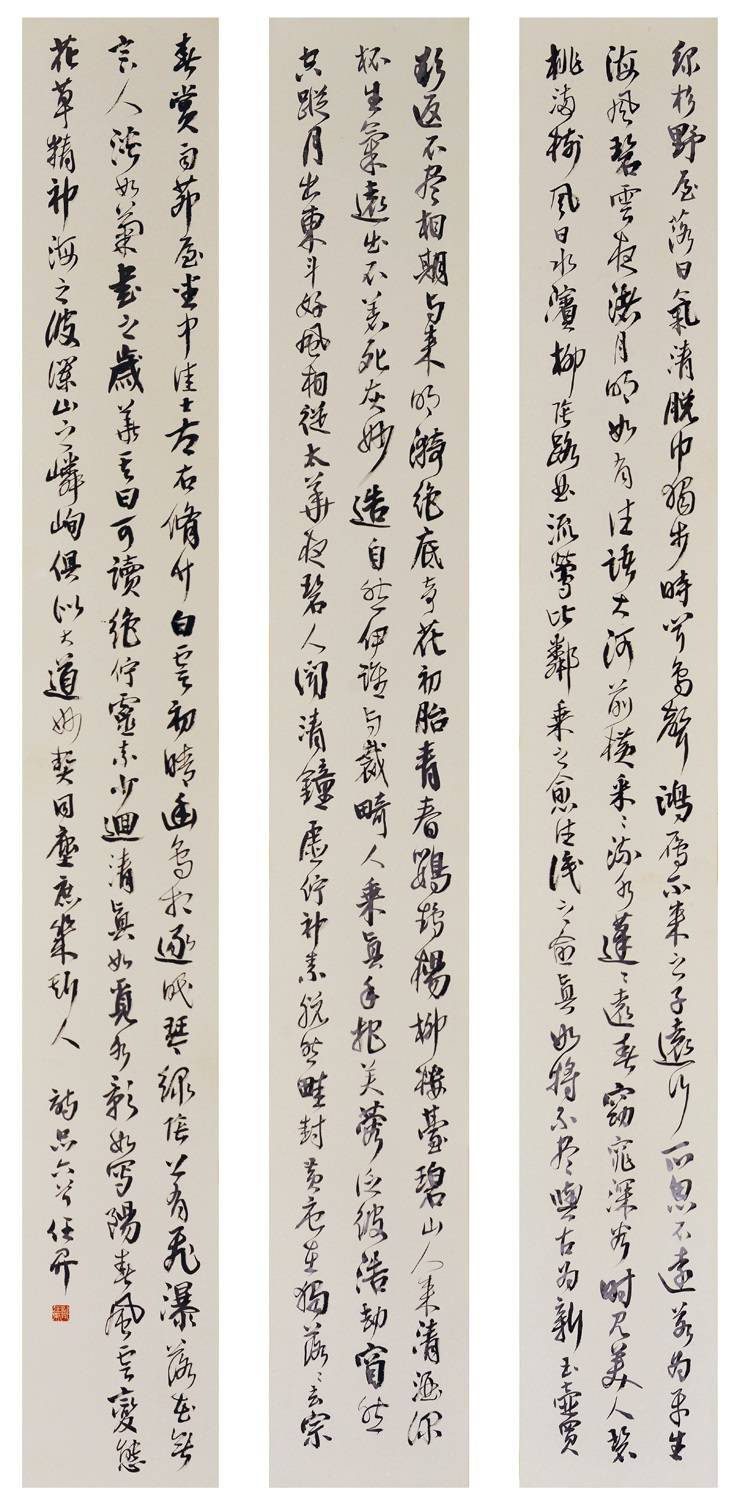 綠杉野屋落日氣清脫巾獨步時聞鳥聲鴻雁不來之子遠行所思不遠若為平生
海風碧雲夜渚月明如有佳語大河前橫采采流水蓬蓬遠春窈窕深谷時見美人碧
桃滿樹風日水濱柳陰路曲流鶯比鄰乘之愈往識之愈真如將不盡與古為新玉壺買
欲返不盡相期與來明漪絕底奇花初胎青春鸚鵡楊柳樓臺碧山人來清酒深
杯生氣遠出不著死灰妙造自然伊誰與裁畸人乘真手把芙蓉泛彼浩劫窅然
空蹤月出東斗好風相從太華夜碧人聞清鐘虛佇神素脫然畦封黃唐在獨落落玄宗
春賞雨茆屋坐中佳士左右脩竹白雲初晴幽鳥相逐眠琴綠陰上有飛瀑落花無
言人淡如菊書之歲華其曰可讀絕佇靈素少迴清真如覓水影如寫陽春風雲變態
花草精神海之波瀾山之嶙峋俱似大道妙契同塵庶幾斯人 詩品六首 任